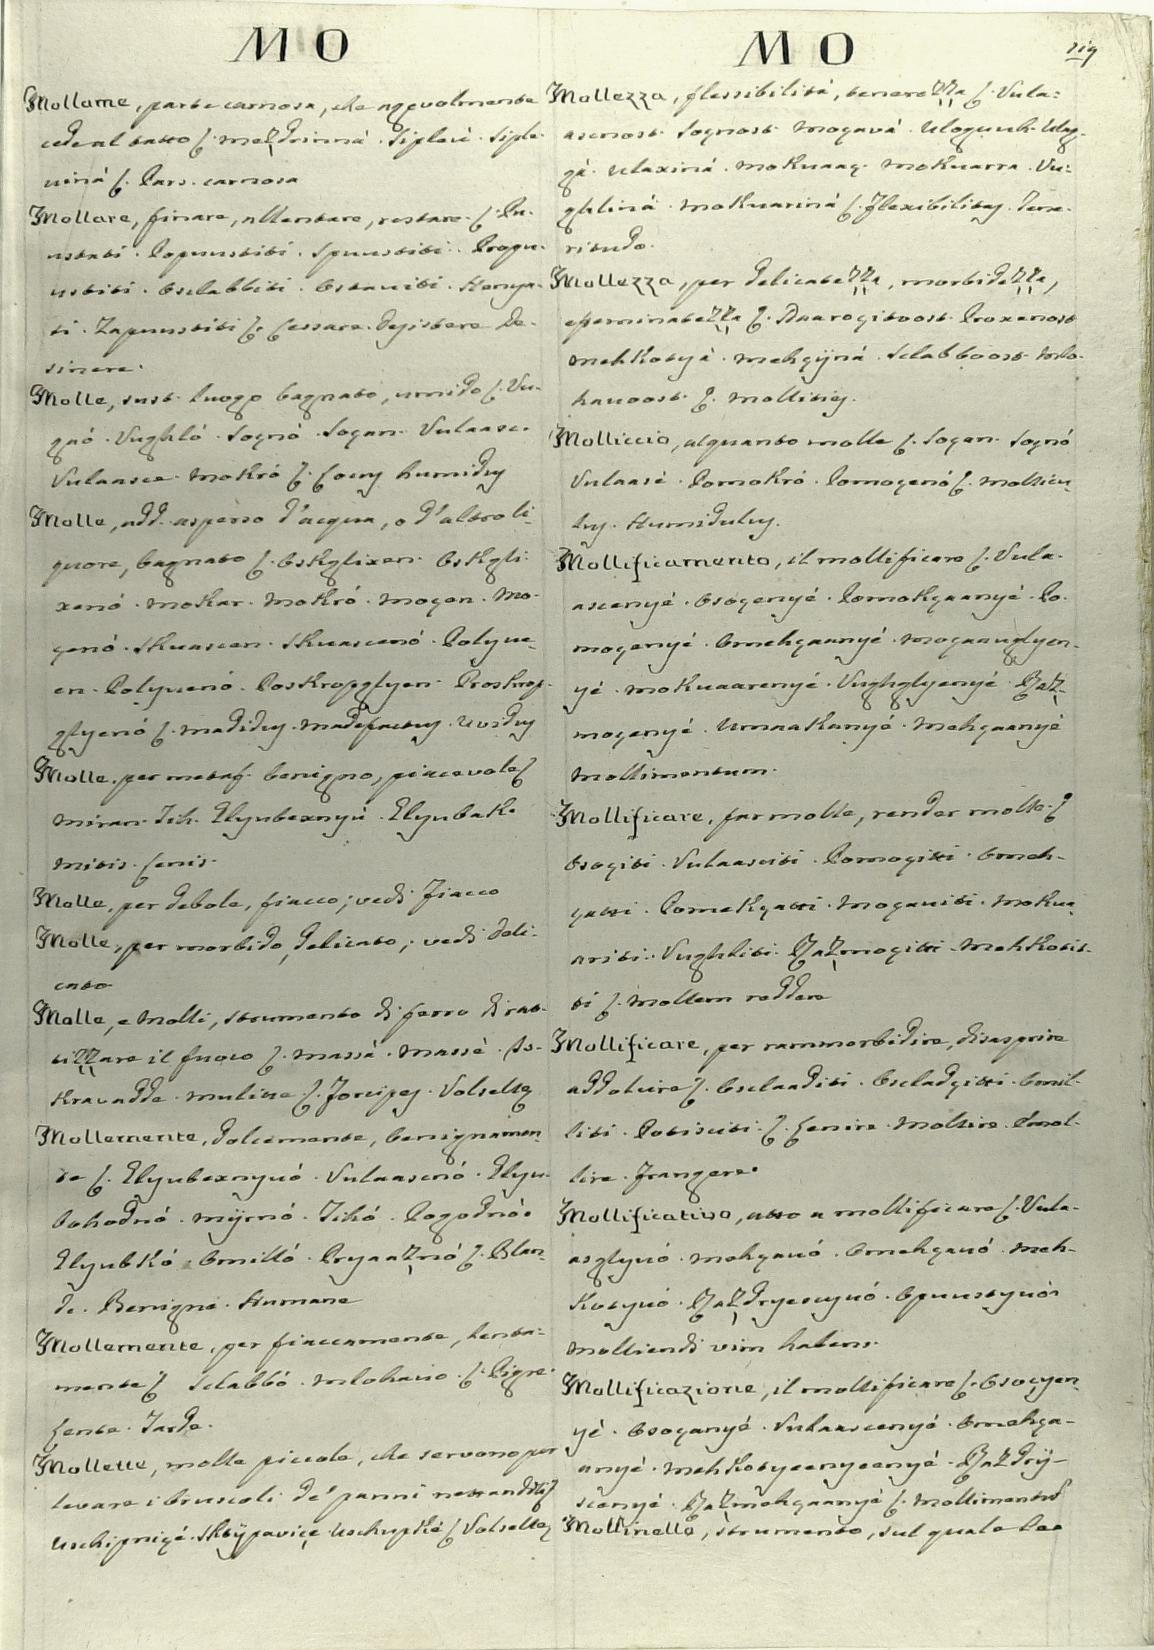 MO
Mollame, parte carnosa, che agevolmente
cede al tatto ʃ. meʒdrinná. Siplavè. Siple-
vinà ʃ. Pars. carnosa
Mollare, finare, allentare, restare. ʃ. Pu-
ustati. Popuustiti. Spuustiti. Propu-
ustiti. Oslabbiti. Ostaviti. Konya-
ti. Zapuustiti ʃ. Cessare. Desistere De-
sinere.
Molle, sust. luogo bagnato, umido ʃ. Vu-
gao. Vughló. Sognó. Sogan. Vulaasc.
Vulaasce. Mokró ʃ. Locus humidus
Molle, add. asperso d'acqua, o d'altro li-
quore, bagnato ʃ. Oskglixen. Oskgli-
xenó. Mokar. Mokró. Mogen. Mo-
genó. Skvascen. Skvascenó. Polyve-
en. Polyvenó. Poskropglyen. Proskrop-
glyenó ʃ. madidus. madefactus. Uvidus
Molle. per metaf. benigno, piacevole ʃ
miran. Tih. Glyubexnyú. Glyubak.
mitis. Lenis.
Molle, per debole, fiacco; vedi Fiacco
Molle, per morbido, delicato; vedi Deli-
cato
Molle, e Molli, strumento di ferro di rat-
tizzare il fuoco ʃ. massá. massè. Os-
kravadde. mulitte ʃ. Forcipes. Volsellæ
Mollemente, dolcemente, benignamen-
te ʃ. Glyubexnyvó. Vulaascnó. Glyu-
bohodnó. mÿrnó. Tihó. Pogodnó.
Glyubkó. Omilló. Pryaaznó ʃ. Blan-
de. Benigne. Humane
Mollemente, per fiaccamente, lenta-
mente ʃ Sclabbó. mlohavo. ʃ. Pigre
Lente. Tarde.
Mollette, molle piccole, che servono per
levare i bruscoli de' panni nettandoli ʃ
Usckipnigé. Sktÿpaviçe Uschupké ʃ Volsellæ
MO
Mollezza, flessibilità, tenerezza ʃ. Vula-
ascnost. Sognost. mogavá.
mokvarrá. Vu-
ghlinà. mokvarinà ʃ. Flexibilitas. Tene-
ritudo.
Mollezza, per delicatezza, morbidezza,
effeminatezza ʃ. Proxenost
mehkotyá. mehgÿná. Sclabboost. Mlo-
havoost ʃ. mollities.
Molliccio, alquanto molle ʃ. Sogan. Sognó
Vulaasé. Pomokró. Pomogenó ʃ. mollicu-
lus. Humidulus.
Mollificamento, il mollificare ʃ. Vula-
ascenyé. Osogenyé. Pomokgaanyé. Po-
mogenyé. Omehgaanyé. mogaavglyen-
yé. mokvaarenyé. Vughglyenyé. Raz-
mogenyé. Umaakanyé. Mehgaanyé
mollimentum.
Mollificare, far molle, render molle. ʃ
Osogiti. Vulaasciti. Pomogitti. Omeh-
gatti. Pomekgatti. Mogaviti. Mokva-
ariti. Vughliti. Razmogitti. Mehkotit-
ti ʃ. mollem reddere
Mollificare, per rammorbidire, disasprire
addolcire ʃ. Osclaaditi. Oscladgitti. Omil-
liti. Potisciti. ʃ. Lenire. Mollire. Emol-
lire. Frangere.
Mollificativo, atto a mollificare ʃ. Vula-
asglyvó. mehgavó. Omehgavó. meh-
kotyvó. Razdryescyvó. Opuustyvó.
molliendi vim habens.
Mollificazione, il mollificare ʃ. Osogyen-
yé. Osoganyé. Vulaascenyé. Omehga-
anyé. mehkotyeenyeenyé. Razdrÿ-
scenyé. Razmehgaanyé ʃ. mollimentum
Mollinello, strumento, sul quale le